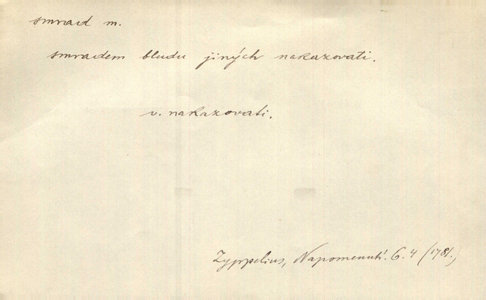 smrad m.
smradem bludu jiných nakazovati.
v. nakazovati.
Zyppelius, Napomenutí. 6. 4 (1781.